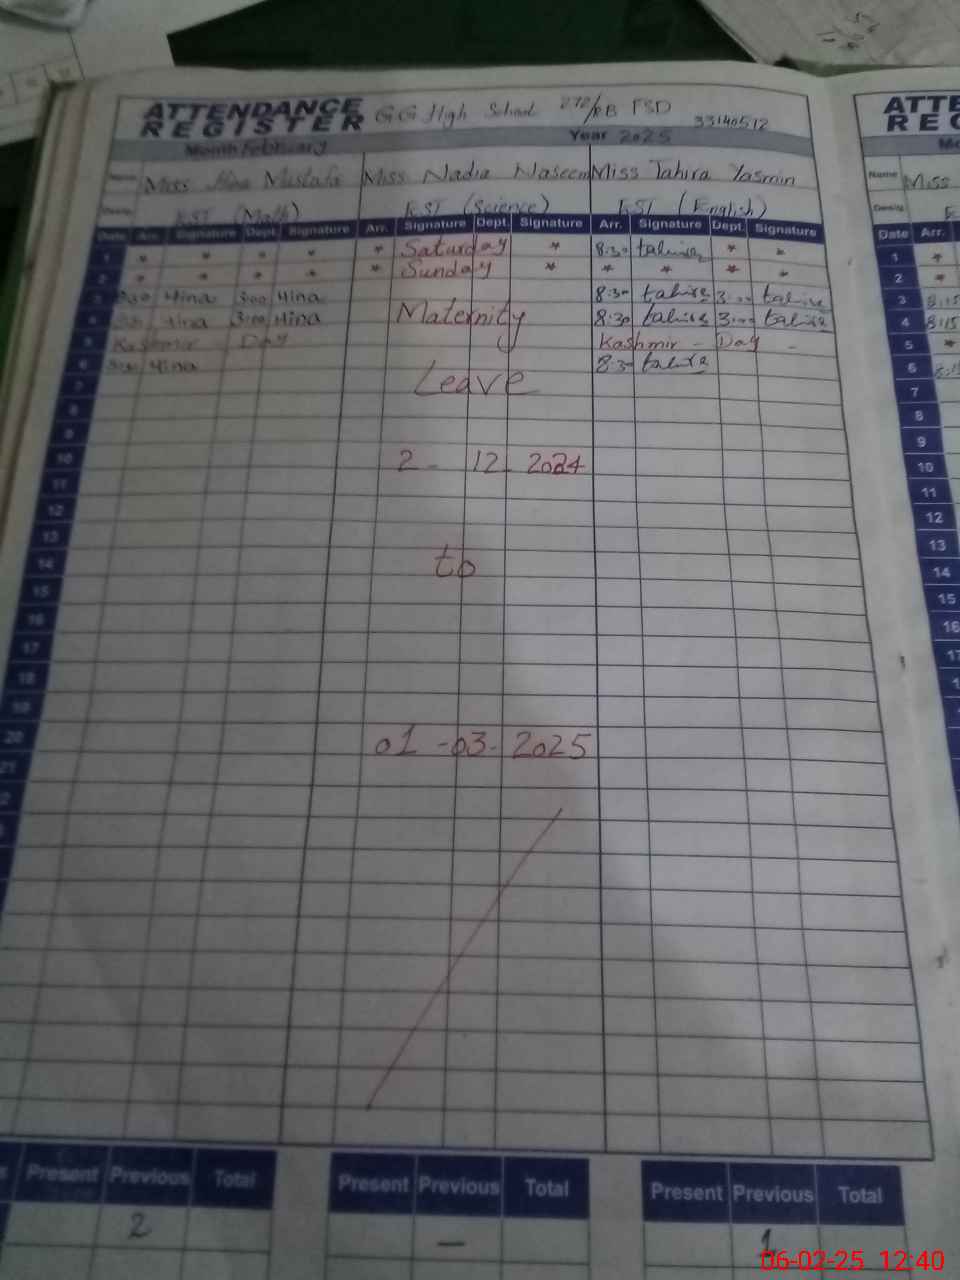 ATTENDANCE REGISTER GG High School 272/RB FSD 33140512
Month February Year 2025
Name Miss Hina Mustafa Miss Nadia Naseem Miss Tahira Yasmin
Desig. EST (Math) EST (Science) EST (English)
Date Arr. Signature Dept. Signature Arr. Signature Dept. Signature Arr. Signature Dept. Signature
1 * * * * * Saturday * 8:30 tahira * *
2 * * * * * Sunday * * * * *
3 Hina 3:00 Hina 8:30 tahira 3:00 tahira
4 Hina 3:00 Hina Maternity 8:30 tahira 3:00 tahira
5 Kashmir Day Kashmir - Day -
6 Hina 8:30 tahira
7 Leave
8
9
10 2 - 12 - 2024
11
12
13
14 to
15
16
17
18
19
20 01 - 03 - 2025
21
Present Previous Total Present Previous Total Present Previous Total
2 — 1
ATTE
REG
Name Miss
Desig.
Date Arr.
1 *
2 *
3 8:15
4 8:15
5 *
6
7
8
9
10
11
12
13
14
15
16
17
06-02-25 12:40